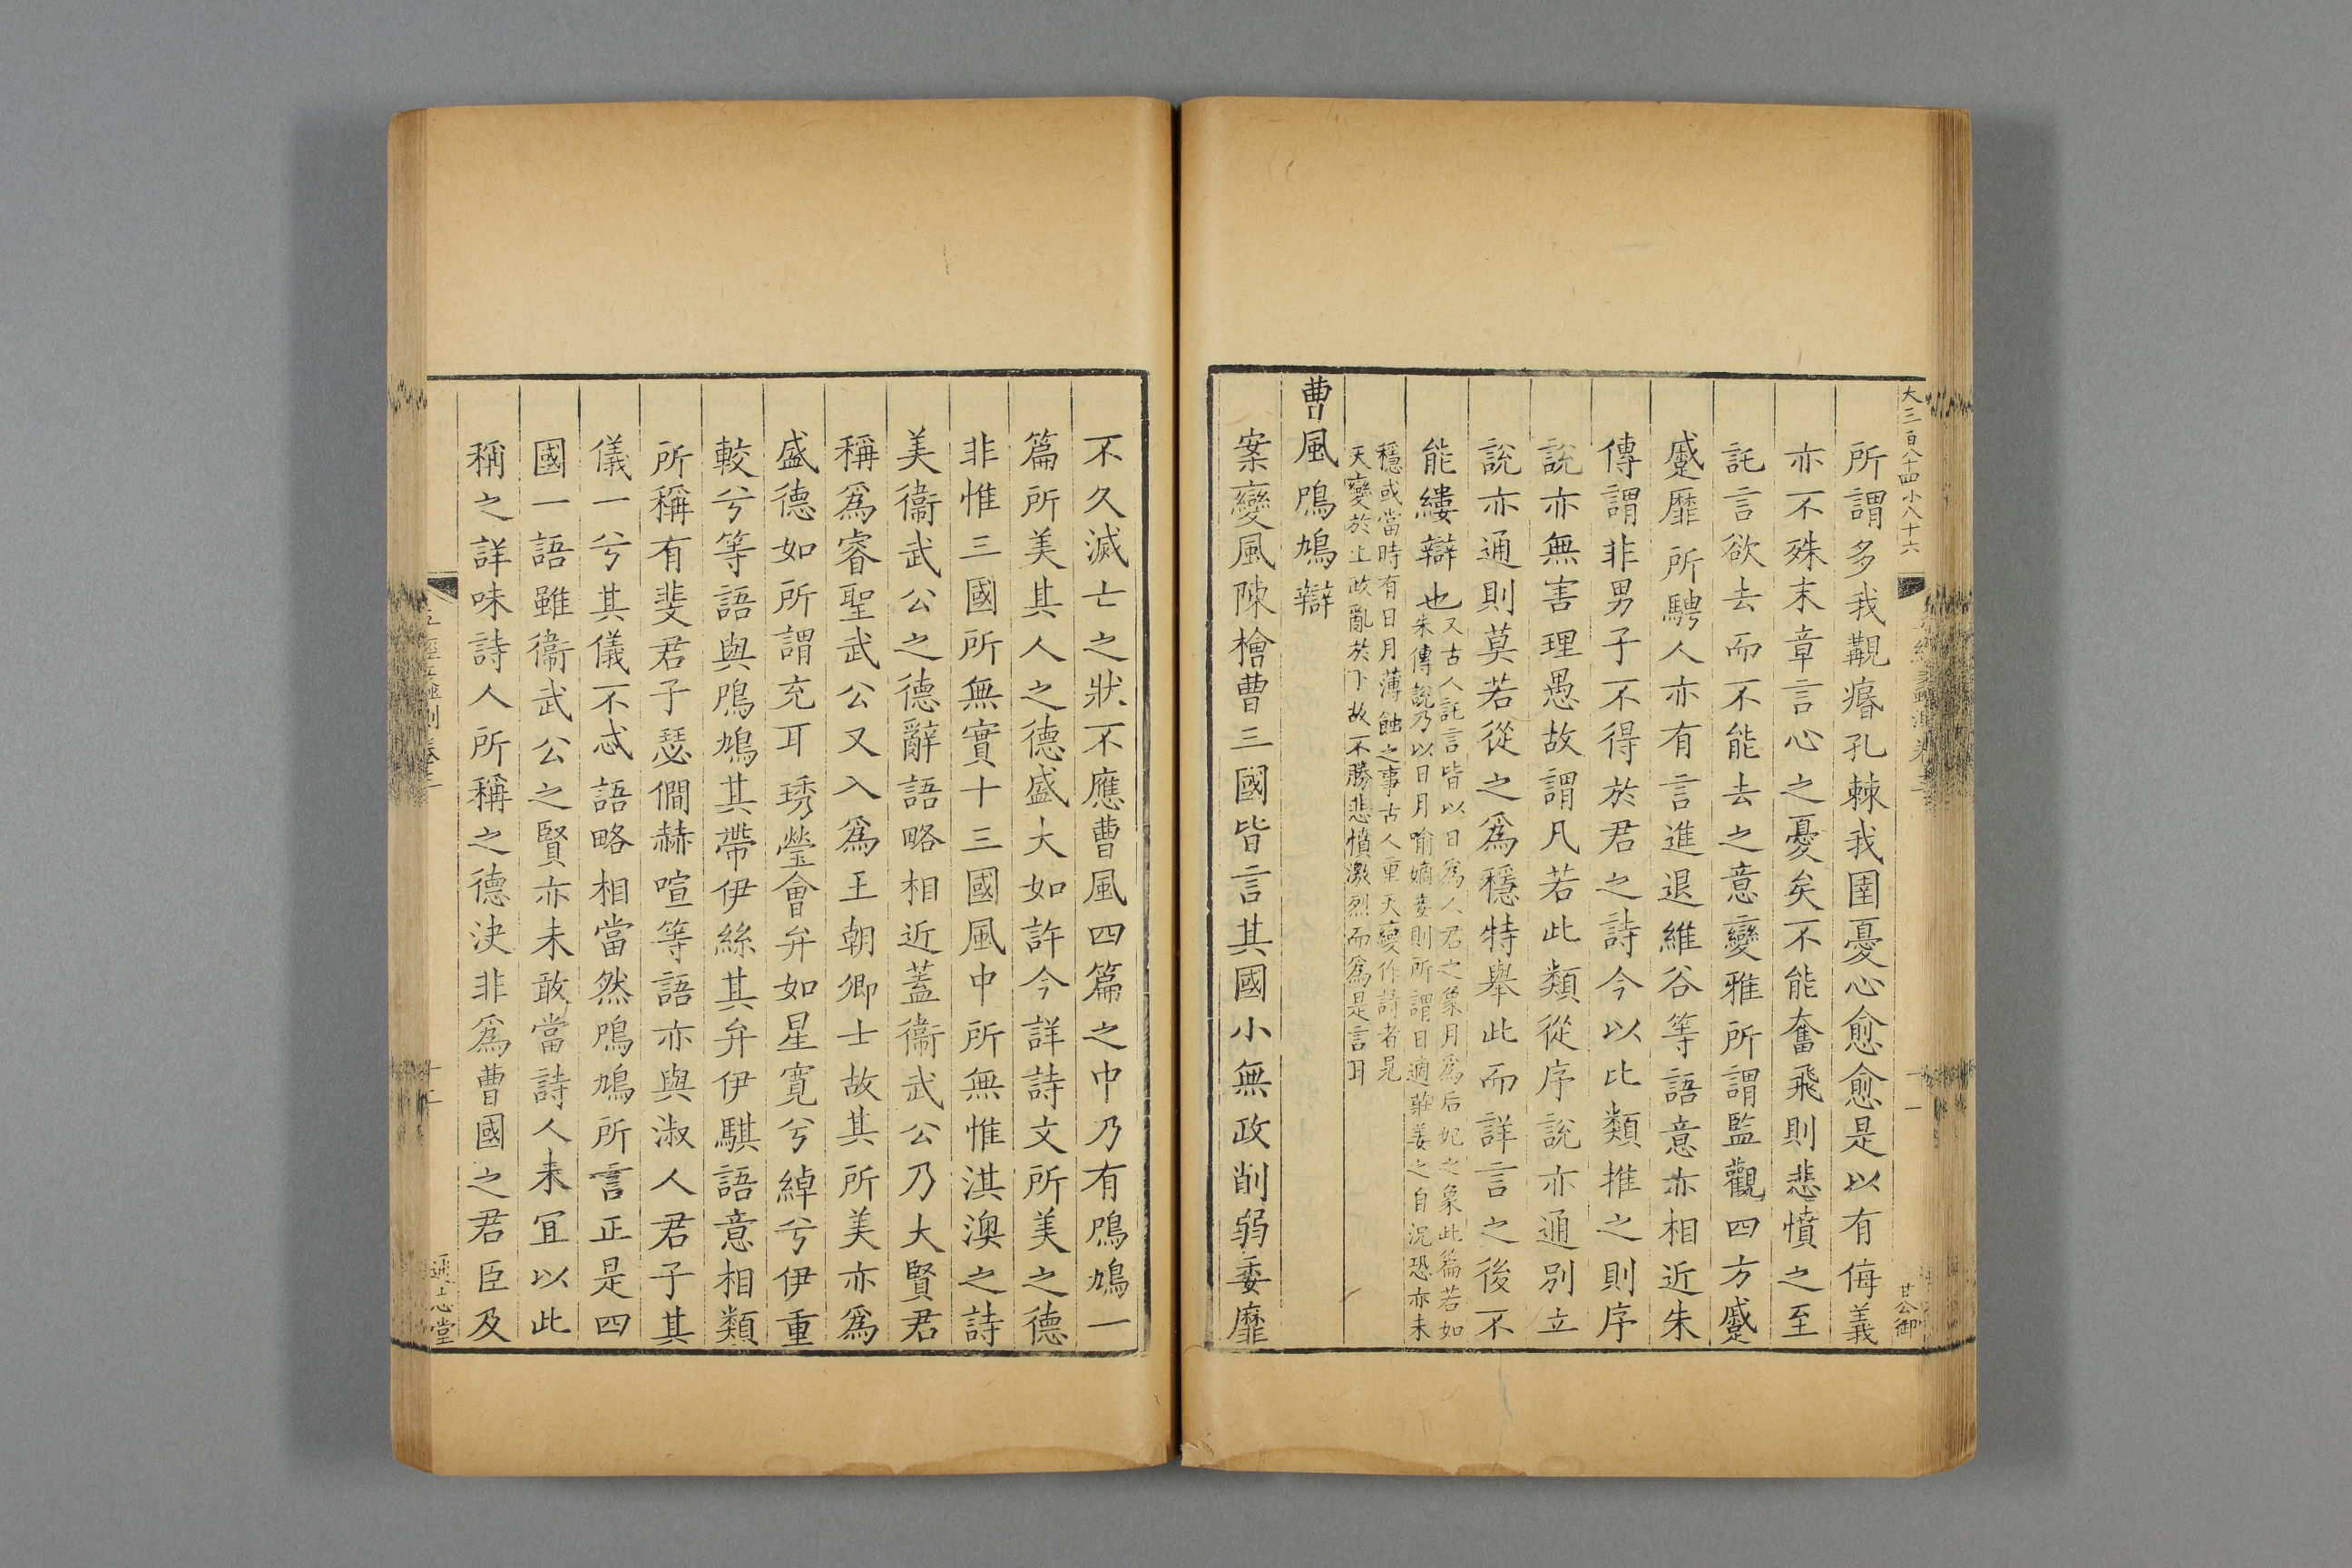 大三百八十四小八十六
所謂多我觀痻孔棘我圉憂心愈愈是以有侮義
亦不殊末章言心之憂矣不能奮飛則悲憤之至
託言欲去而不能去之意變雅所謂監觀四方蹙
蹙靡所騁人亦有言進退維谷等語意亦相近朱
傳謂非男子不得於君之詩今以比類推之則序
說亦無害理愚故謂凡若此類從序說亦通別立
說亦通則莫若從之爲穩特舉此而詳言之後不
能縷辯也又古人託言皆以日爲人君之象月爲后妃之象此篇若如
朱傳說乃以日月喻嫡妾則所謂日適莊姜之自況恐亦未
穩或當時有日月薄蝕之事古人重天變作詩者見
天變於上政亂於下故不勝悲憤激烈而爲是言耳
曹風鳲鳩辯
案變風陳檜曹三國皆言其國小無政削弱委靡
甘公御
不久滅亡之狀不應曹風四篇之中乃有鳲鳩一
篇所美其人之德盛大如許今詳詩文所美之德
非惟三國所無實十三國風中所無惟淇澳之詩
美衞武公之德辭語略相近蓋衞武公乃大賢君
稱爲睿聖武公又入爲王朝卿士故其所美亦爲
盛德如所謂充耳琇瑩會弁如星寬兮綽兮伊重
較兮等語與鳲鳩其帶伊絲其弁伊騏語意相類
所稱有斐君子瑟僩赫喧等語亦與淑人君子其
儀一兮其儀不忒語略相當然鳲鳩所言正是四
國一語雖衞武公之賢亦未敢當詩人未宜以此
稱之詳味詩人所稱之德決非爲曹國之君臣及
十二
通志堂